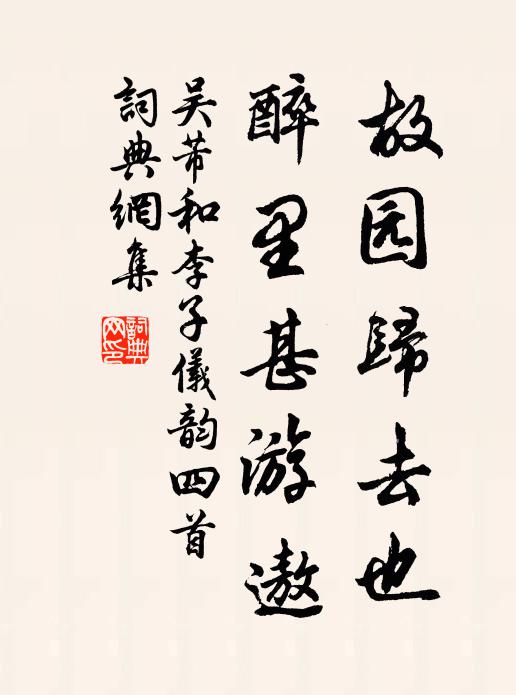 故园歸去也
醉里甚游遨
吴芾和李子儀韵四首
詞典網集
詞典
网印